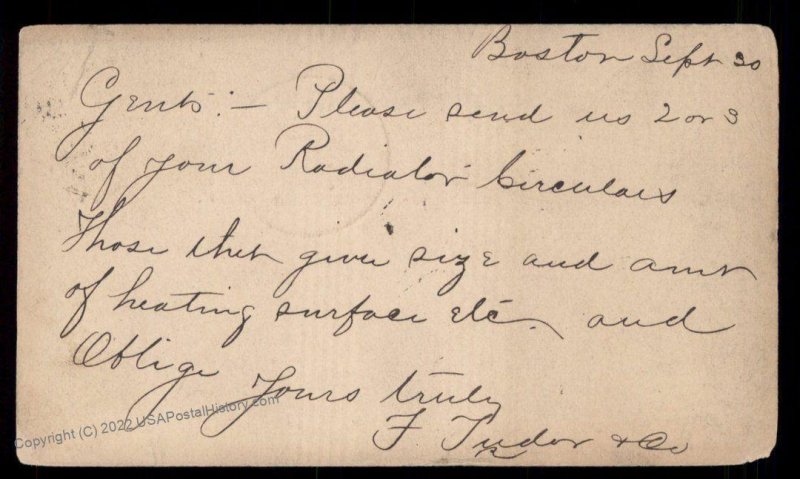 Boston Sept 30
Gents:- Please send us 2 or 3
of your Radiator Circulars
Those that give size and amt
of heating surface etc. and
Oblige Yours truly
F. Tudor & Co
Copyright (C) 2022 USAPostalHistory.com